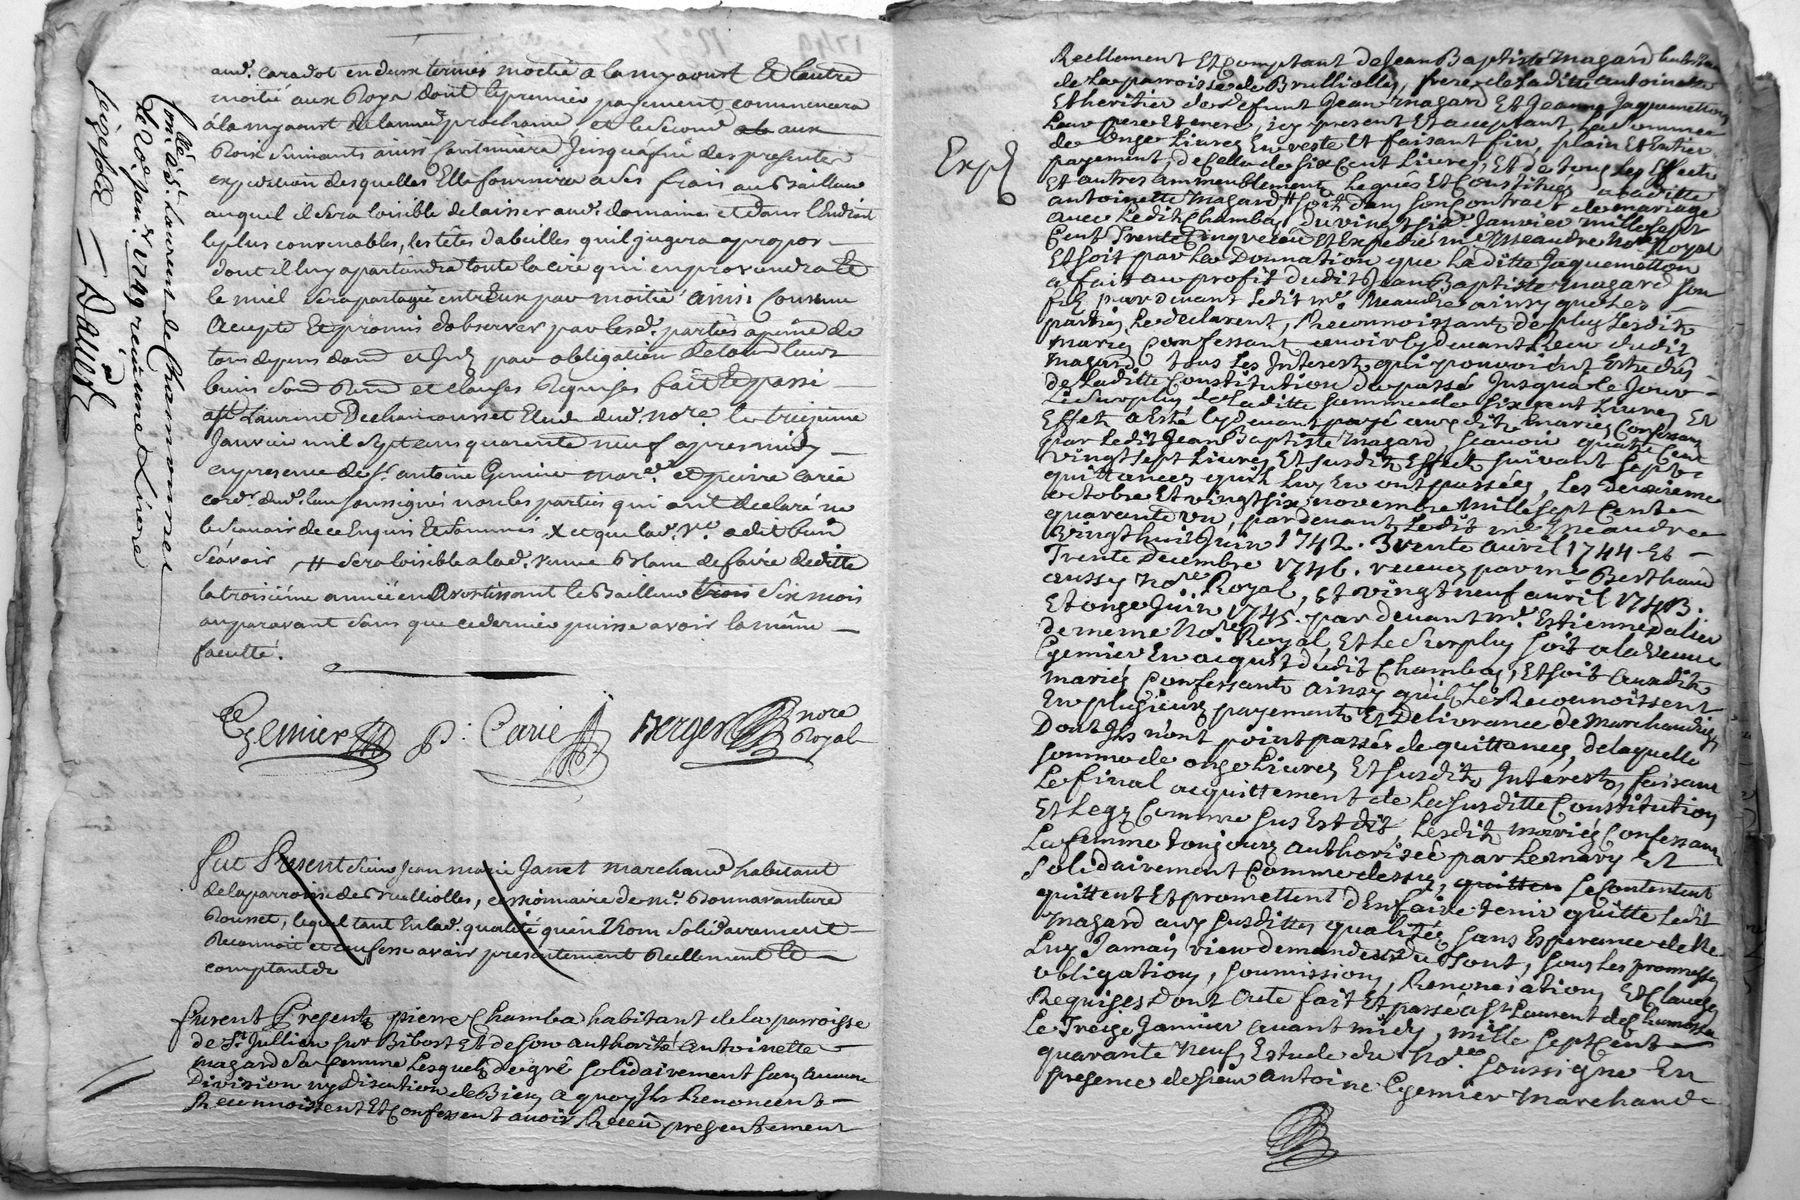 aud. caradot en deux termes moitié a la my aoust Et l'autre
moitié aux Roys dont le premier payement commencera
á la my aoust de l'année prochaine et le second aux
Rois suivants ainsi continüera Jusqu'á fin des presentes
expedition desquelles Elle fournira a ses frais au Bailleur
auquel il sera loisible de laisser aud. domaine et dans l'Endroit
le plus convenables, les têtes d'abeilles qu'il jugera apropos
dont il luy apartiendra toute la cire qui en proviendra Et
le miel sera partagé entr'Eux par moitié ainsi Convenu
Accepté Et promis d'observer par lesd. parties a peine de
tous depens dom et Int par obligation de tous leurs
biens soum Renon et clauses Requises fait Et passé
a St Laurent De chamousset Etude dud. nore le treizieme
Janvier mil sept cens quarente neuf apres midy
en presence de Sr. antoine Gemier mard. et pierre carié
cord. dud. lieu soussignés non les parties qui ont declaré ne
le scavoir de ce Enquis Et sommés X et que lad. Ve. a dit bien
Scavoir # sera loisible a lad. veuve Blanc de faire deditte
la troisiéme année en Avertissant le Bailleur trois Six mois
auparavant sans que ce dernier puisse avoir la même
faculté.
Gemier P. Carié Berger nore Royal
Collé à St. Laurent de Chamousset
Le 20. Janv. 1749 reçu une Livre
seize sols
David
fut Present Sieur Jean marie Janet marchand habitant
de la parroisse de Brulliolles, cessionnaire de me. Bonnavanture
Rousset, lequel tant En lad. qualité qu'en Nom solidairement
Reconnoit et confesse avoir presentement Reellement Et
comptant de
furent Presents pierre Chamba habitant de la parroisse
de St Jullien sur Bibost Et de son authorité antoinette
magard sa femme Lesquels de gré solidairement sans aucune
Division ny Discution de Biens a quoy Ils Renoncent
Reconnoissent Et Confessent avoir Receu presentement
Exp
Reellement Et Comptant de Jean Baptiste Magard habitant
de La parroisse de Brulliolles, frere de Laditte antoinette
Et heritier de deffunt Jean Magard Et Jeanne Jaquemetton
Leur pere Et mere, icy present Et acceptant, La somme
de Onze Livres En reste Et faisant fin, plain Et Entier
payement, de celle de six Cent Livres, Et de tous les Effects
Et autres Ammeublement Legués Et Constitués a laditte
antoinette Magard soit dans son Contract de mariage
avec Ledit Chamba, du vingt six Janvier mille sept
Cent Trente Cinq receû Et Expedié me Meaudre Nore Royal
Et soit par La Donnation que Laditte Jaquemetton
a fait au profit dudit Jean Baptiste Magard son
fils par devant ledit me. Meaudre ainsy que Les
parties Le declarent, Reconnoissants de plus Lesdits
mariés Confessant avoir cy devant Receu dudit
Magard tous Les Interest qui pouvoient Estre dûs
de Laditte Constitution du passé Jusqua ce Jour
Le surplus de laditte somme de six cent Livres Et
Effets a Esté cy devant payé ausdits mariés Confessants
par Ledit Jean Baptiste Magard, scavoir quatre Cent
vingt sept Livres Et susdits Effects suivant sept
quittances qu'ils Luy En ont passées, les deuxieme
octobre Et vingt six novembre mille sept Cent
quarante un, par devant Ledit me Meaudre
vingt huit Juin 1742. Trente avril 1744 Et
Trente Decembre 1746. receues par me Berthaud
aussy Nore Royal, Et vingt neuf avril 1743.
Et onze Juin 1745. par devant Mr. Estienne Dalier
de meme Nore Royal, Et Le surplus soit a la Veuve
Gemier En acquit dudit Chamba, Et soit ausdits
mariés Confessants ainsy qu'ils Le Reconnoissent
En plusieurs payements Et Delivrance de Marchandises
Dont Ils n'ont point passés de quittances, de laquelle
somme de onze Livres Et susdits Interests, faisant
Le final acquittement de La susditte Constitution
Et Legs Comme sus Est dit, Lesdits mariés Confessants
La femme toujours authorisée par Le mary Et
solidairement Comme dessus, quitten se Contentent
quittent Et promettent d'En faire tenir quitte Ledit
Magard aux susdittes qualités, sans Esperance de Ne
Luy Jamais rien demander du tout, sous Les promesses
obligations, soumissions, Renonciations Et Clauses
Requises Dont Acte fait Et passé a St Laurent de Chamousset
Le Treize Janvier avant midy, mille sept Cent
quarante Neuf, Estude du Nore soussigné En
presence de sieur Antoine Gemier Marchand